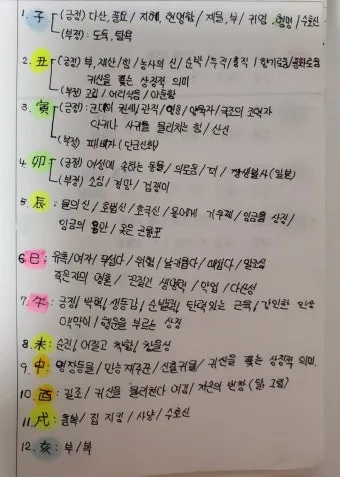 1. 子 (긍정) 다산, 풍요 / 지혜, 현명함 / 재물, 부 / 귀염, 형명 / 수호신
(부정) : 도둑, 탐욕
2. 丑 (긍정) 부, 재산 / 힘 / 농사의 신 / 순박 / 우직 / 충직 /
귀신을 쫓는 상징적 의미
(부정) 고집 / 어리석음 / 아둔함
3. 寅 (긍정) : 군대의 권세 / 관직 / 영웅 / / 국조의 조력자
악귀나 사귀를 물리치는 힘 / 산신
(부정) 패배자 (단군신화)
4. 卯 (긍정) 여성에 속하는 동물 / 의로움 / 꾀 / (일본)
(부정) 소심 / 경망 / 겁쟁이
5. 辰 : 물의 신 / 호법신 / 호국신 / 용에게 기우제 / 임금을 상징 /
임금의 용안 / 옷은 곤룡포
6. 巳 : 유혹 / 여자 / 무섭다 / 위험 / 날카롭다 / 매섭다 /
죽은자의 영혼 / 끈질긴 생명력 / 악업 / 다산성
7. 午 : 긍정, 박력, 생동감 / 순발력, 탄력있는 근육 / 강인한 인상
액막이 / 행운을 부르는 상징
8. 未 : 순진, 어질고 착함 / 참을성
9. 申 : 만능 재주꾼 / / 귀신을 쫓는 상징적 의미.
10. 酉 : 길조 / 귀신을 물리친다 여김 / 자손의 번창 (닭 그림)
11. 戌 : 충복 / 집 지킴 / 사냥 / 수호신
12. 亥 : 부 / 복